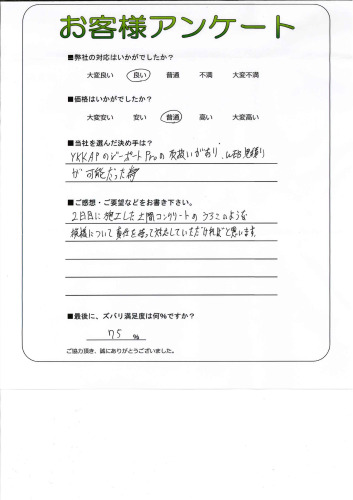 お客様アンケート
■弊社の対応はいかがでしたか？
大変良い 良い 普通 不満 大変不満
■価格はいかがでしたか？
大変安い 安い 普通 高い 大変高い
■当社を選んだ決め手は？
YKKAPのジーポートProの取扱いがあり、WEB見積り
が可能だった
■ご感想・ご要望などをお書き下さい。
2日目に施工した土間コンクリートのうろこのような
模様について責任を持って対応していただければと思います。
■最後に、ズバリ満足度は何％ですか？
75 %
ご協力頂き、誠にありがとうございました。